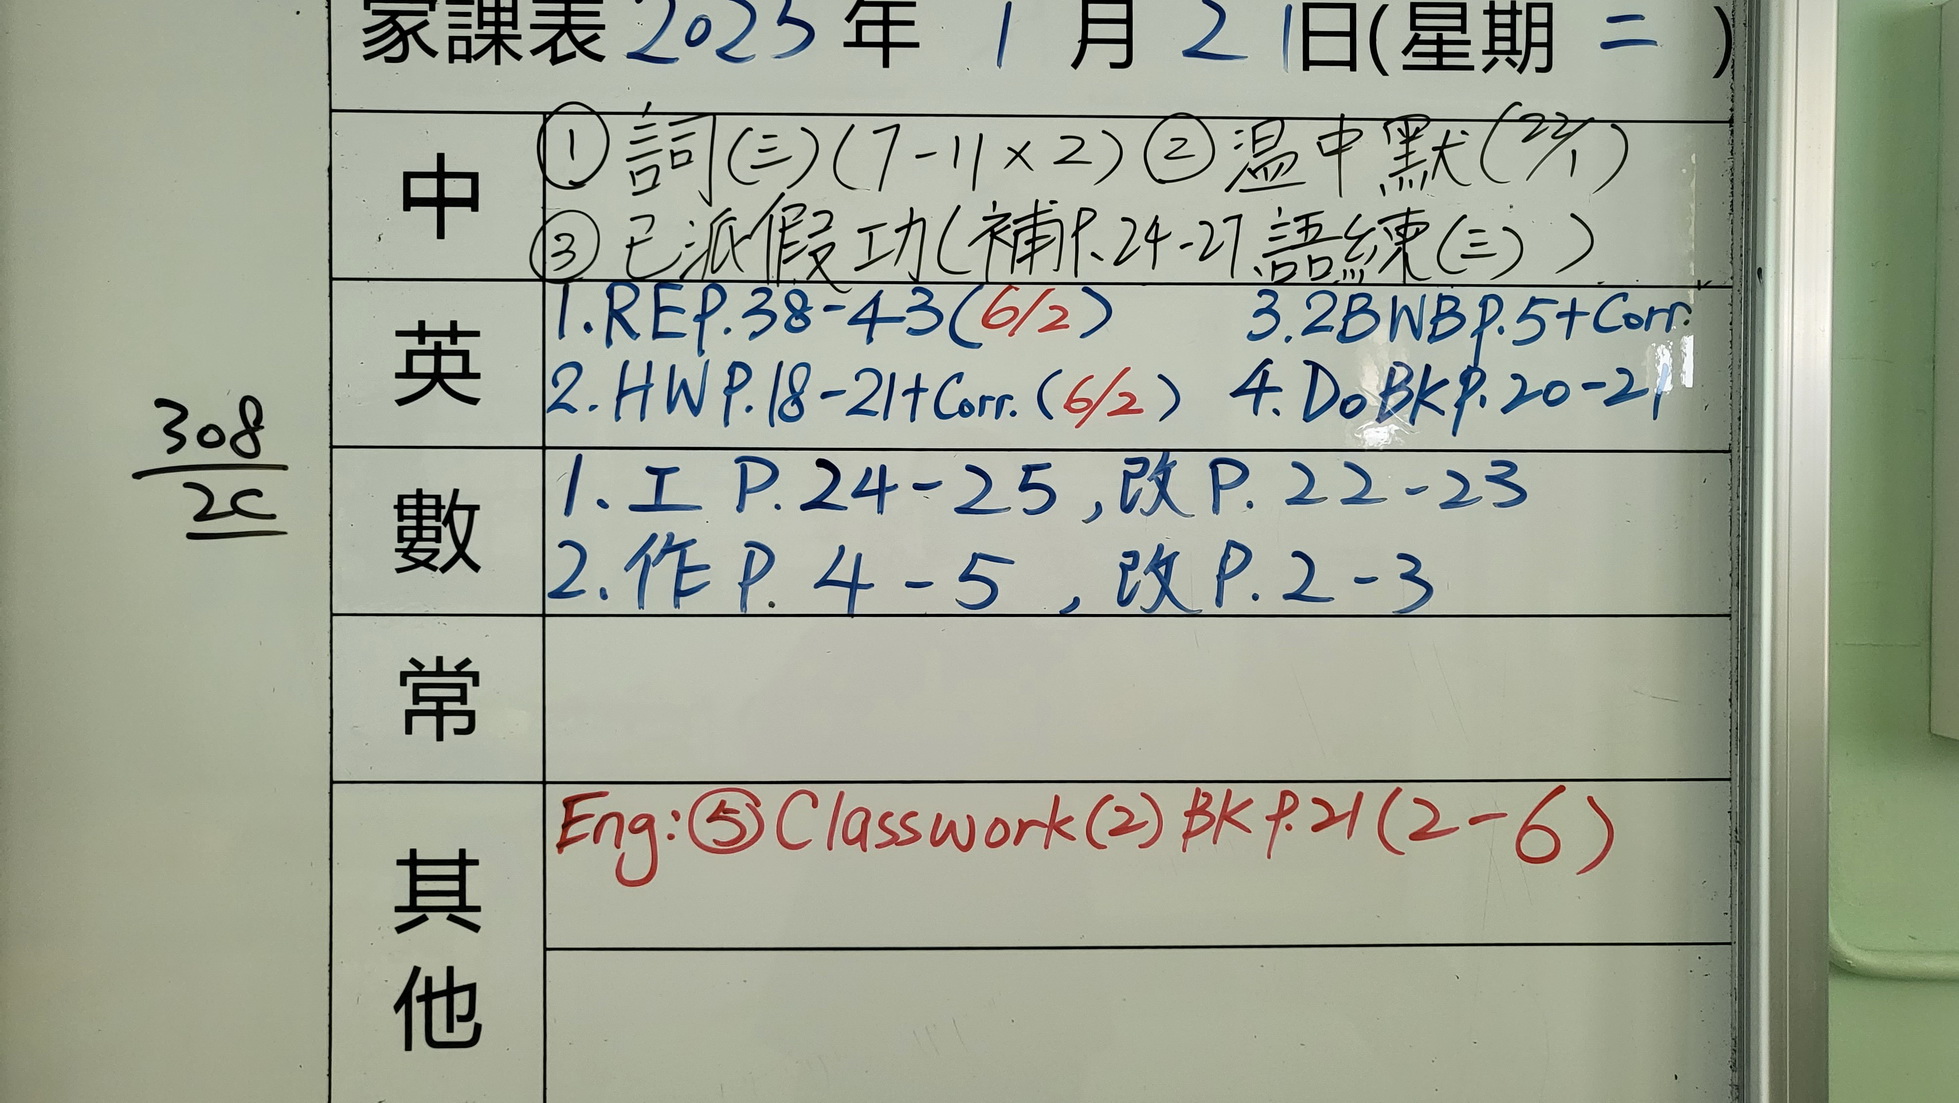 家課表 2025 年 1 月 21 日(星期 二 )
中
① 詞(三)(7-11×2) ② 温中默(22/1)
③ 已派假功(補P.24-27語練(三))
英
1.REP.38-43(6/2) 3.2BWBP.5+Corr.
2.HWP.18-21+Corr.(6/2) 4.DoBKP.20-21
308
2C
數
1.工 P.24-25,改P.22-23
2.作P.4-5,改P.2-3
常
其他
Eng:⑤Classwork(2)BKP.21(2-6)